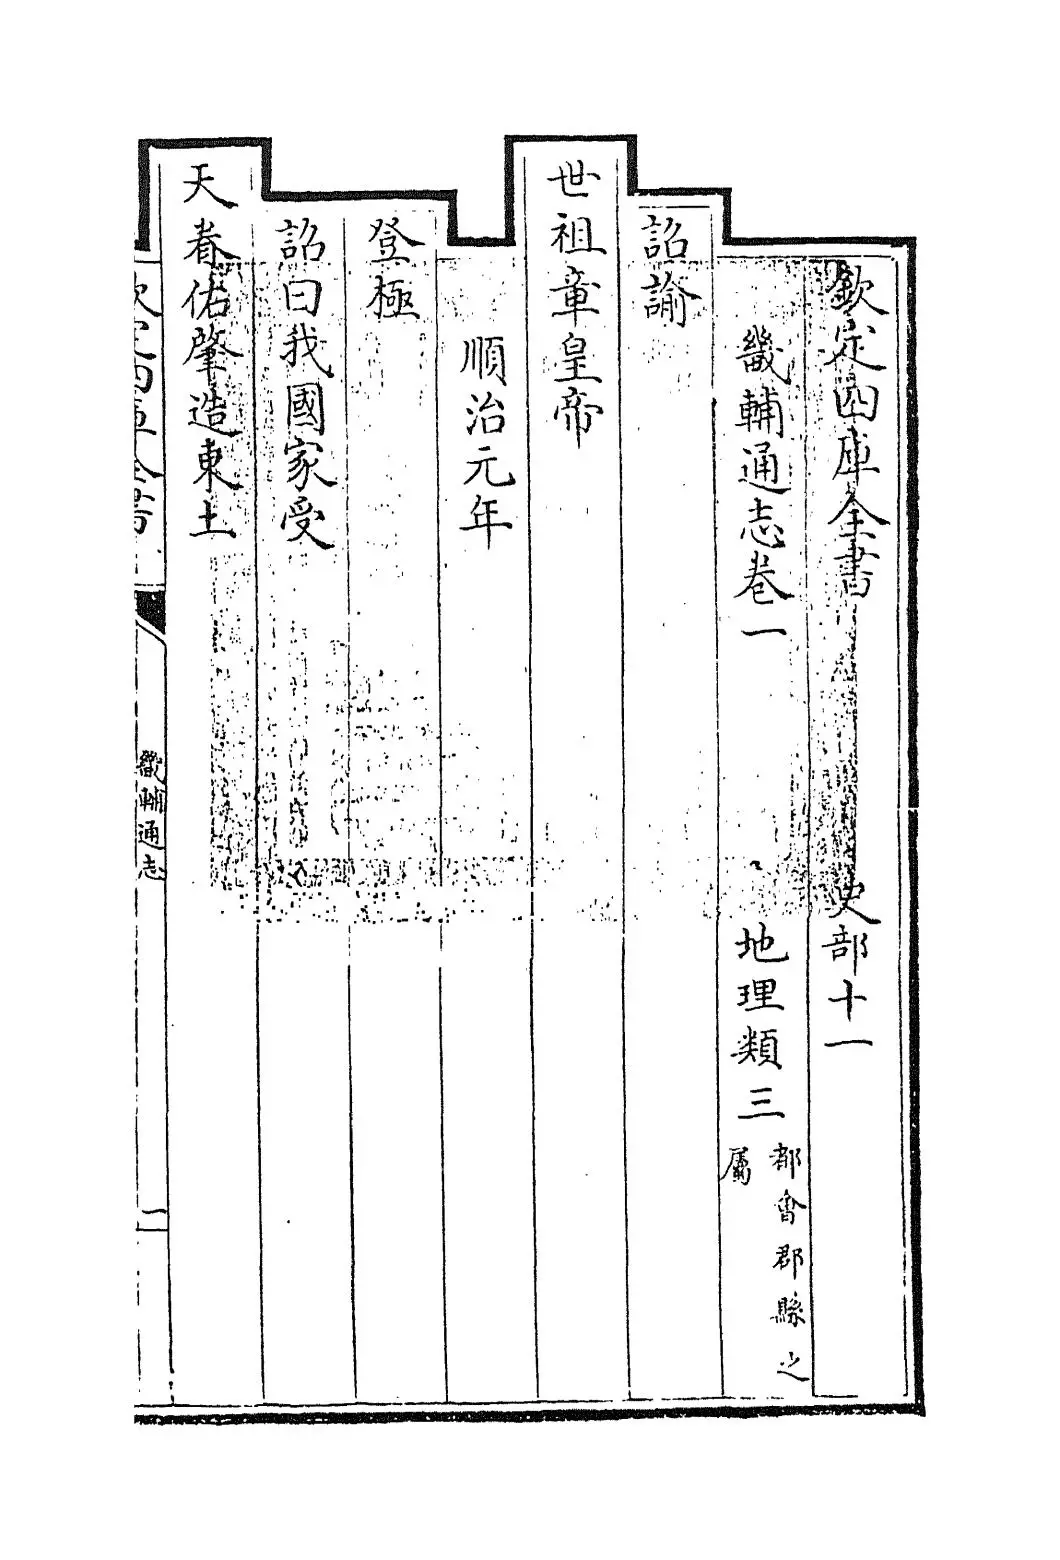 欽定四庫全書 史部十一
畿輔通志卷一 地理類三 都會郡縣之
屬
詔諭
世祖章皇帝
順治元年
登極
詔曰我國家受
天眷佑肇造東土
欽定四庫全書
畿輔通志
一